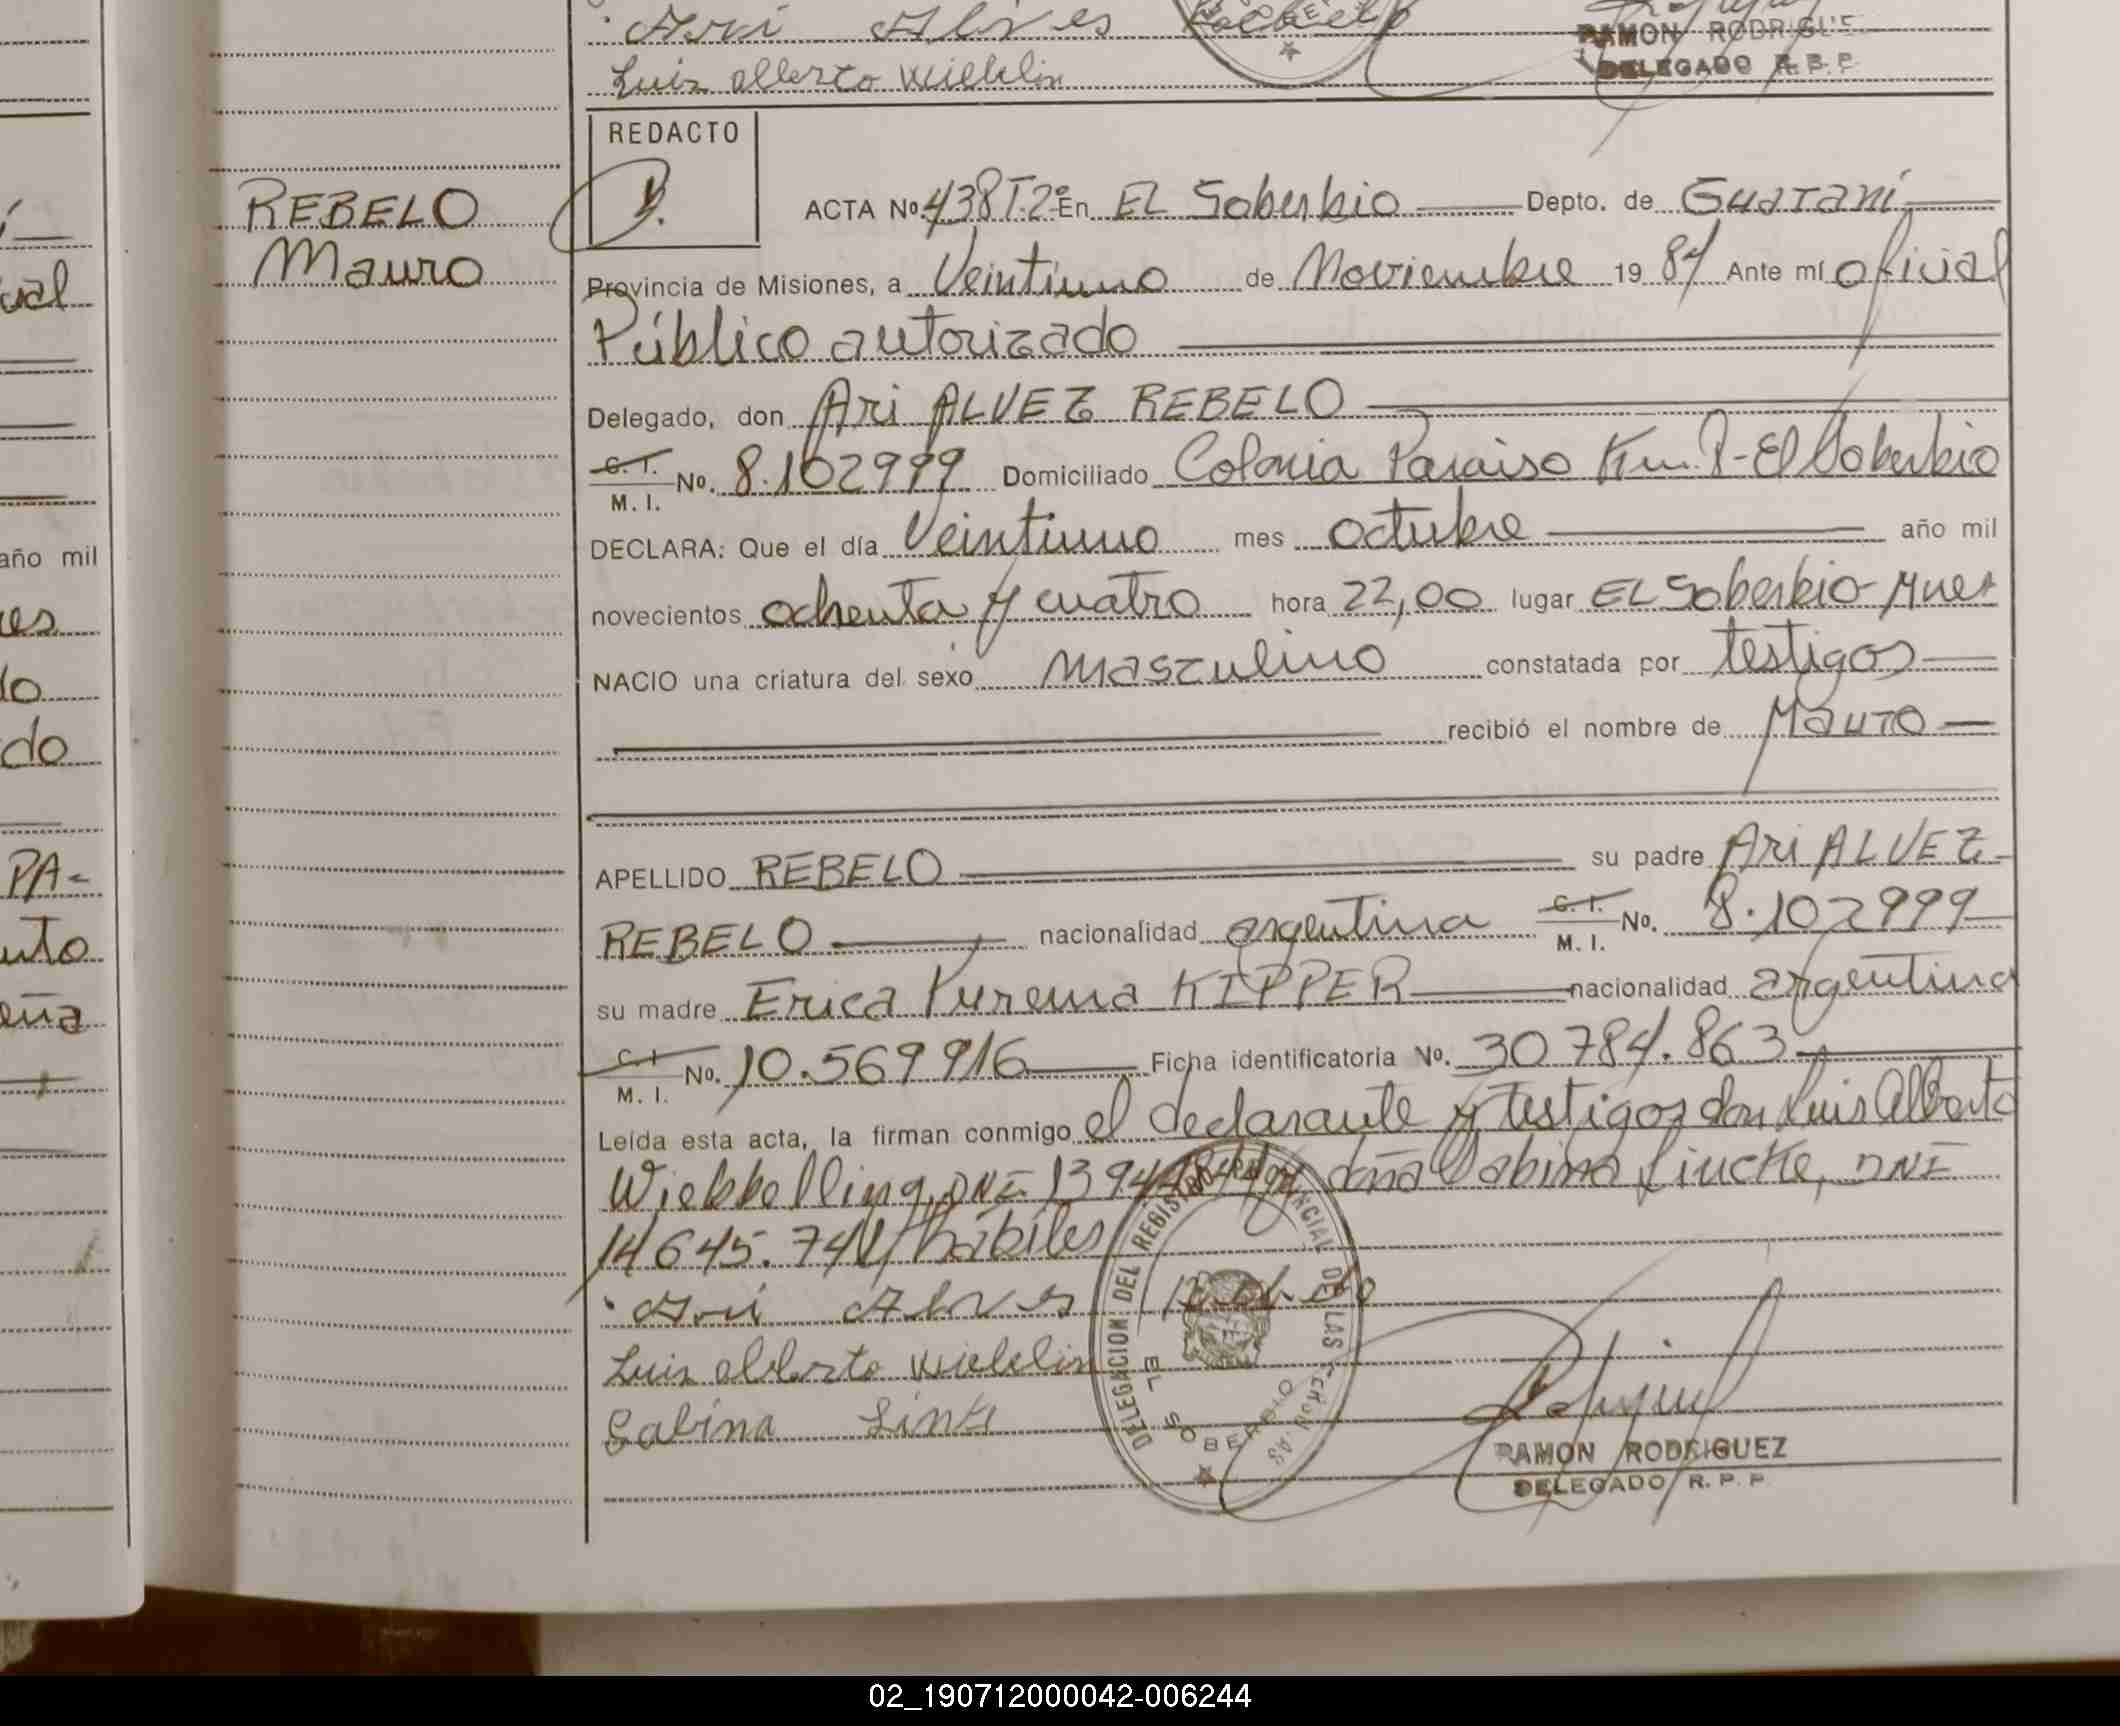 Ari Alves Rebelo
RAMON RODRIGUE
DELEGADO R.P.P.
Luis Alberto
REDACTO
REBELO
Mauro
ACTA No. 438 T.2º En EL Soberbio Depto. de Guaraní
Provincia de Misiones, a Veintiuno de Noviembre 19 84 Ante mí oficial
Público autorizado
Delegado, don Ari ALVEZ REBELO
C. I. No. 8.102999 Domiciliado Colonia Paraiso Km. 8-El Soberbio
M. I.
DECLARA: Que el día Veintiuno mes octubre año mil
novecientos ochenta y cuatro hora 22,00 lugar EL Soberbio-Mnes
NACIO una criatura del sexo masculino constatada por testigos
recibió el nombre de Mauro
APELLIDO REBELO su padre Ari ALVEZ
REBELO nacionalidad argentina C. I. No. 8.102999
M. I.
su madre Erica KIPPER nacionalidad argentina
C. I. No. 10.569916 Ficha identificatoria No. 30784.863
M. I.
Leída esta acta, la firman conmigo el declarante y testigos don Luis Alberto
Wiebbelling, DNI doña Sabina DNI
hábiles
Ari Alves Rebelo
Luis Alberto
Sabina Link
DELEGACION DEL REGISTRO PROVINCIAL DE LAS PERSONAS
EL SOBERBIO
RAMON RODRIGUEZ
DELEGADO R.P.P.
ual
año mil
es
lo
do
PA-
uto
eña
02_190712000042-006244